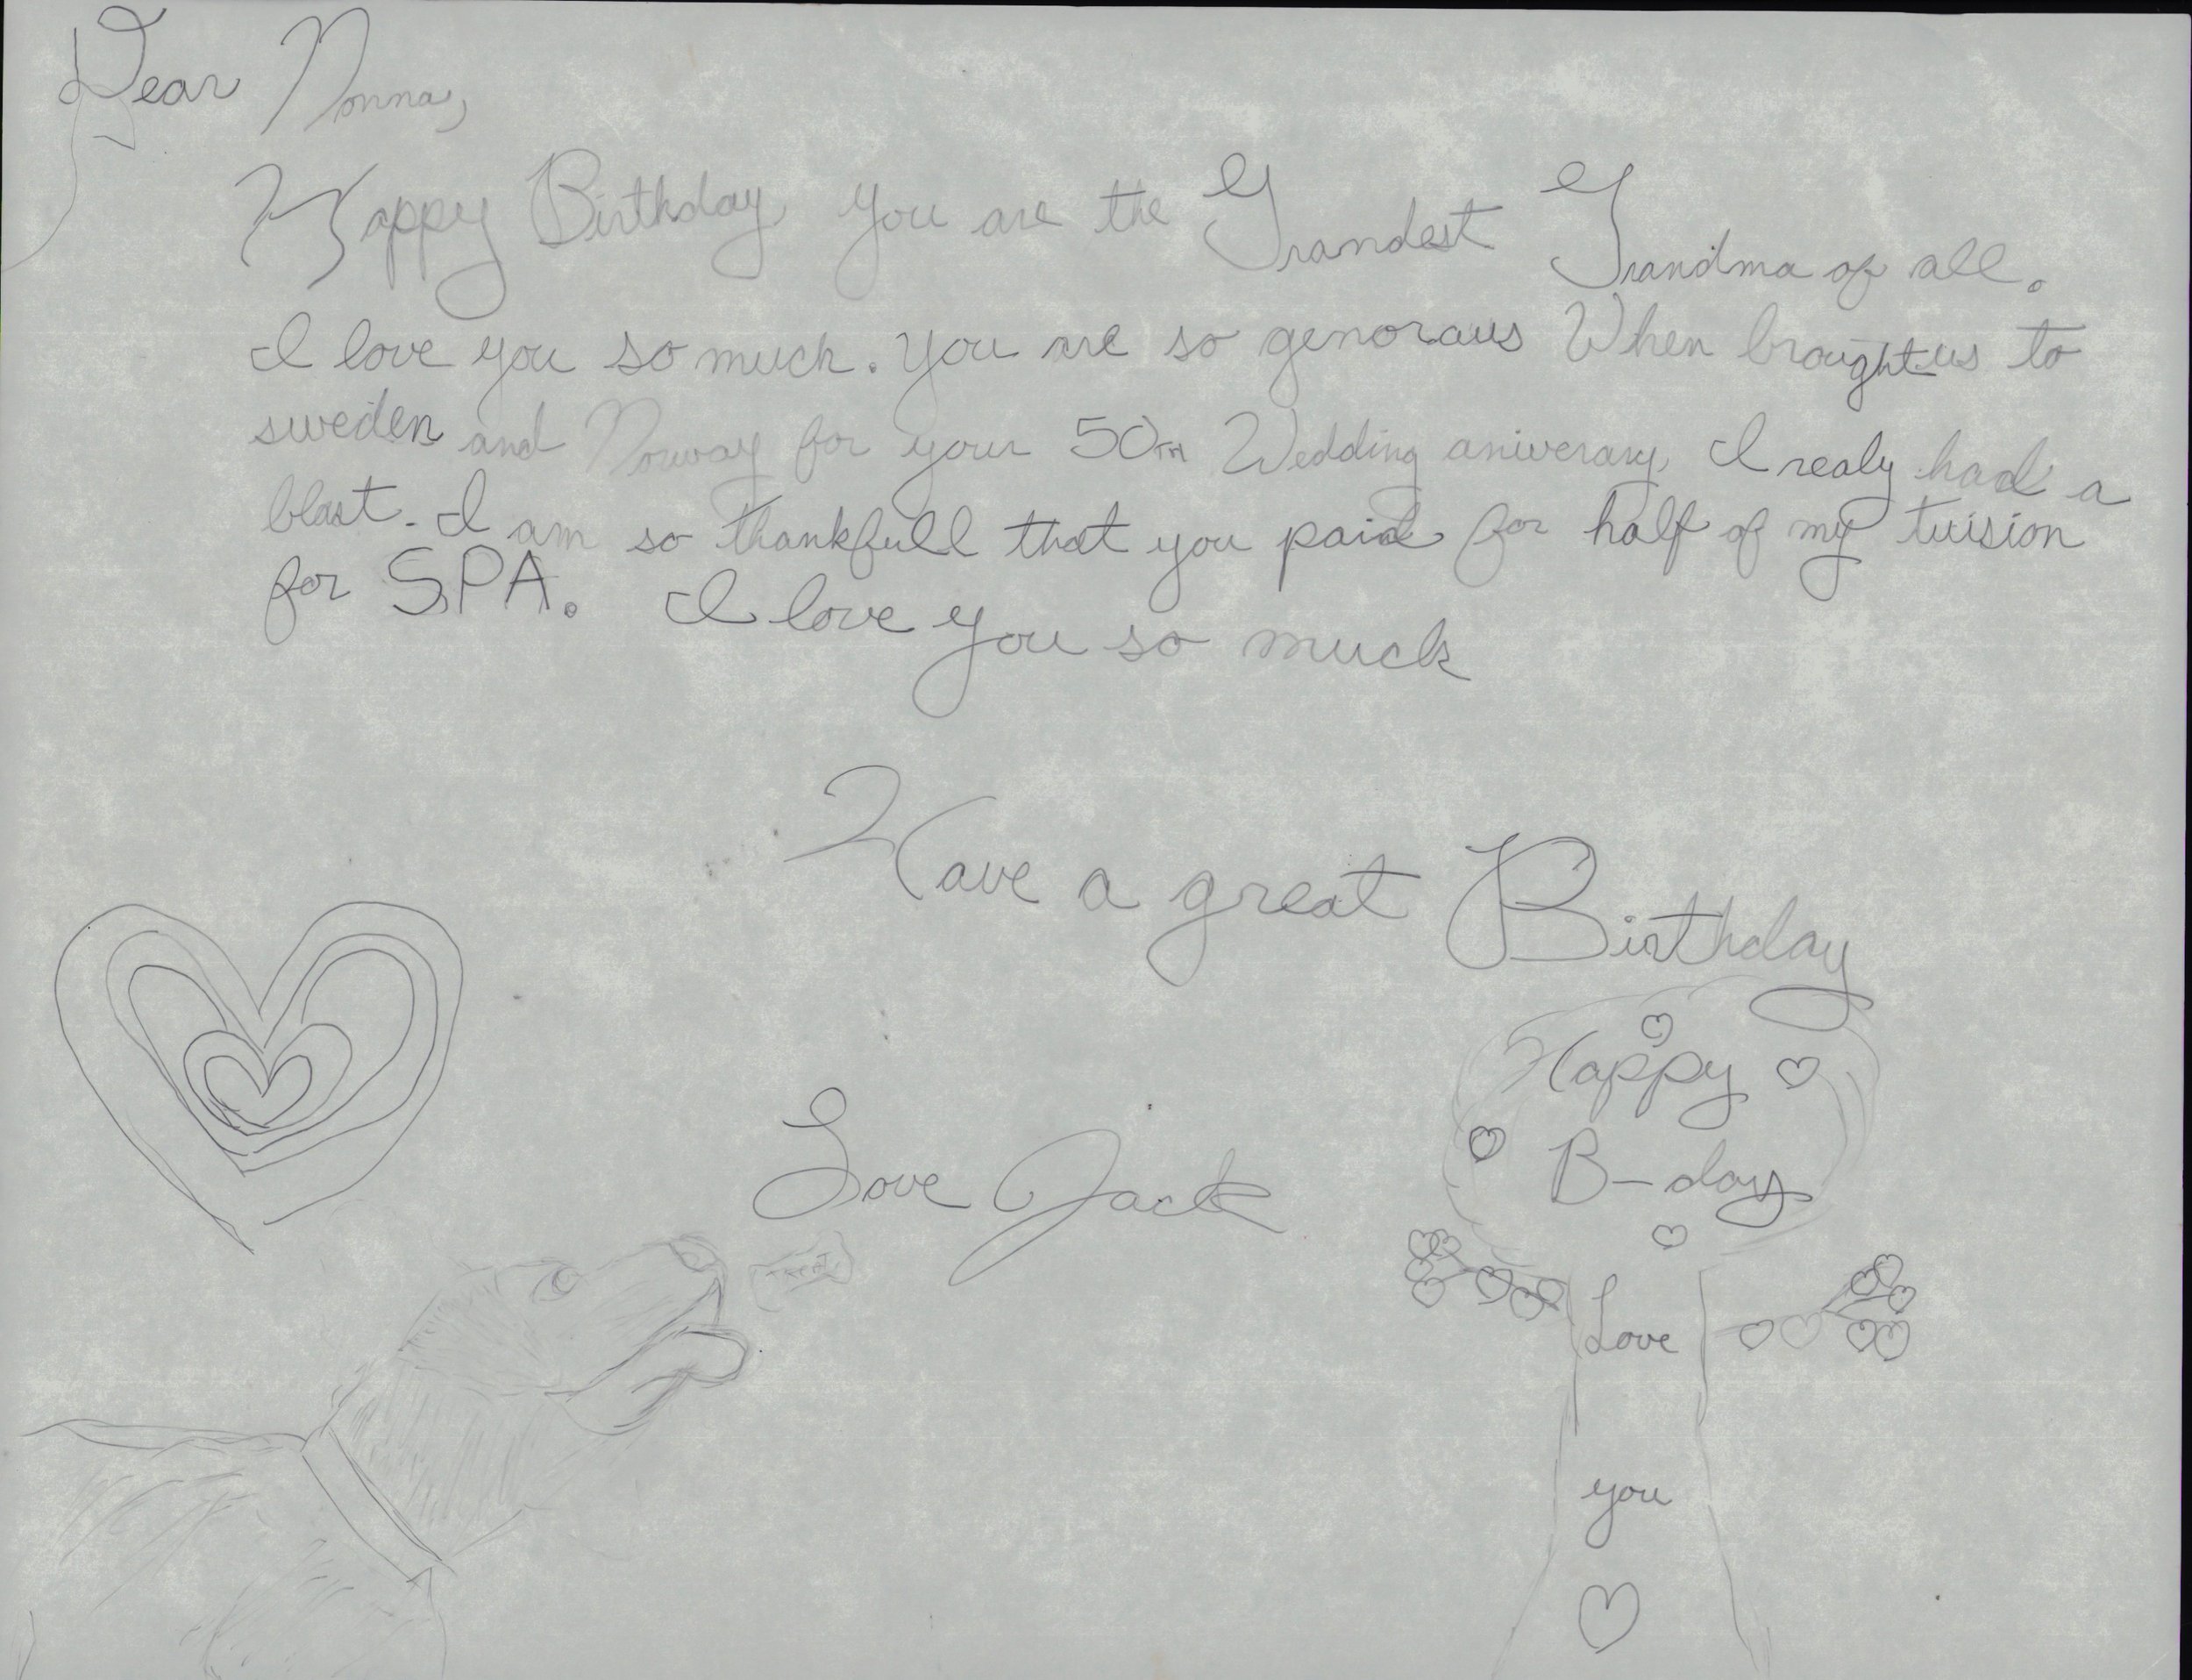 Dear Nonna,
Happy Birthday you are the Grandest Grandma of all.
I love you so much. you are so genoraus When brought us to
sweden and Norway for your 50TH Wedding aniverary, I realy had a
blast. I am so thankfull that you paid for half of my tuision
for SPA. I love you so much
Have a great Birthday
Love Jack
Happy
B-day
TREAT
Love
you